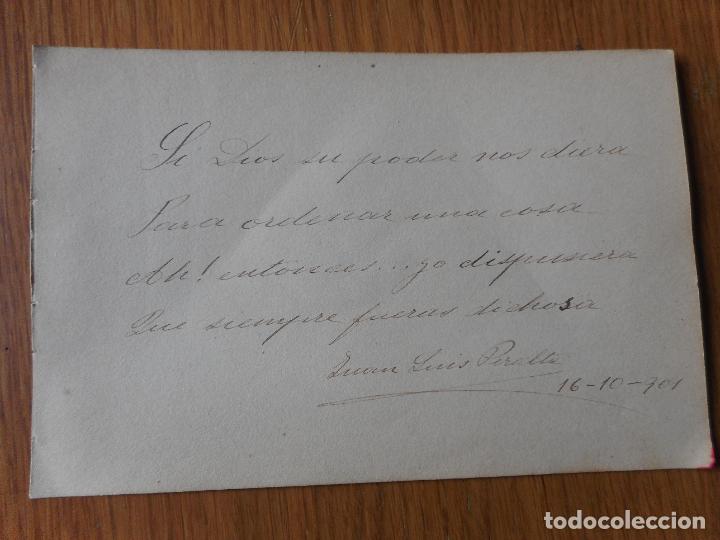 Si Dios su poder nos diera
Para ordenar una cosa
Ah! entonces... yo dispusiera
Que siempre fueras dichosa
Juan Luis Peralta
16-10-901
todocoleccion